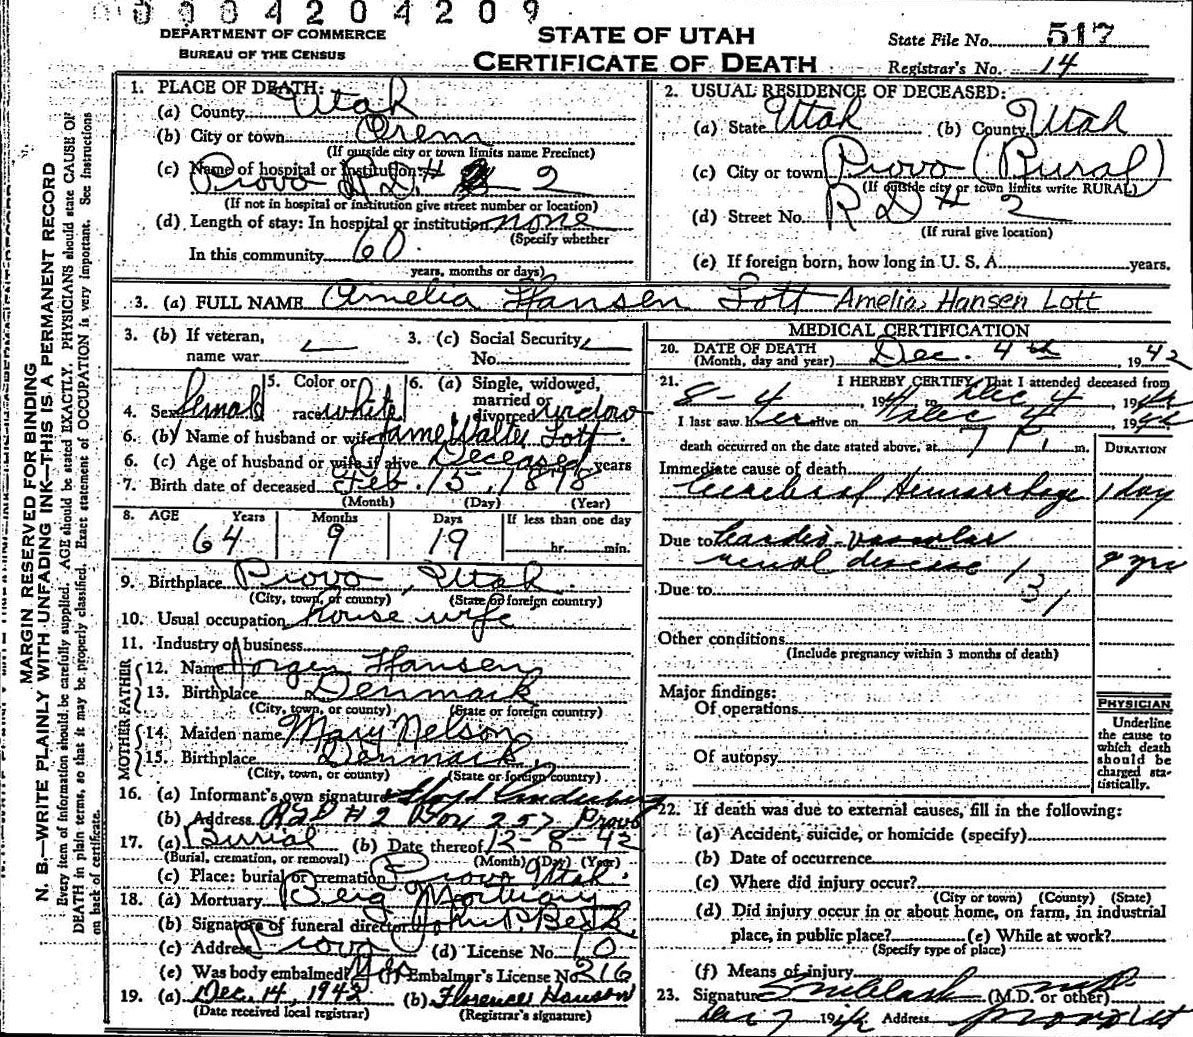 0004204209
DEPARTMENT OF COMMERCE
BUREAU OF THE CENSUS
STATE OF UTAH
CERTIFICATE OF DEATH
State File No. 517
Registrar's No. 14
MARGIN RESERVED FOR BINDING
N. B.—WRITE PLAINLY WITH UNFADING INK—THIS IS A PERMANENT RECORD
Every item of information should be carefully supplied. AGE should be stated EXACTLY. PHYSICIANS should state CAUSE OF
DEATH in plain terms, so that it may be properly classified. Exact statement of OCCUPATION is very important. See Instructions
on back of certificate.
1. PLACE OF DEATH:
(a) County Utah
(b) City or town Orem
(If outside city or town limits name Precinct)
(c) Name of hospital or institution: Provo R.D. # 2
(If not in hospital or institution give street number or location)
(d) Length of stay: In hospital or institution none
(Specify whether
In this community 60
years, months or days)
2. USUAL RESIDENCE OF DECEASED:
(a) State Utah (b) County Utah
(c) City or town Provo (Rural)
(If outside city or town limits write RURAL)
(d) Street No. R D # 2
(If rural give location)
(e) If foreign born, how long in U. S. A. years.
3. (a) FULL NAME Amelia Hansen Lott Amelia Hansen Lott
3. (b) If veteran, name war
3. (c) Social Security No.
4. Sex female
5. Color or race white
6. (a) Single, widowed, married or divorced widow
6. (b) Name of husband or wife Jame Walter Lott
6. (c) Age of husband or wife if alive Deceased years
7. Birth date of deceased Feb. 15, 1878
(Month) (Day) (Year)
8. AGE Years Months Days If less than one day
64 9 19 hr. min.
9. Birthplace Provo, Utah.
(City, town, or county) (State or foreign country)
10. Usual occupation house wife
11. Industry or business
FATHER
12. Name Jorgen Hansen
13. Birthplace Denmark
(City, town, or county) (State or foreign country)
MOTHER
14. Maiden name Mary Nelson
15. Birthplace Denmark
(City, town, or county) (State or foreign country)
16. (a) Informant's own signature Lloyd
(b) Address R D # 2 Box 257 Provo
17. (a) Burrial (b) Date thereof 12-8-42
(Burial, cremation, or removal) (Month) (Day) (Year)
(c) Place: burial or cremation Provo Utah.
18. (a) Mortuary Berg Mortuary
(b) Signature of funeral director John P. Beck
(c) Address Provo (d) License No. 10
(e) Was body embalmed? Yes (f) Embalmer's License No. 216
19. (a) Dec. 14, 1942 (b) Florence Hanson
(Date received local registrar) (Registrar's signature)
MEDICAL CERTIFICATION
20. DATE OF DEATH
(Month, day and year) Dec. 4th, 1942
21. I HEREBY CERTIFY, That I attended deceased from
8-4, 19 to Dec 4, 1942
I last saw her alive on Dec 4, 1942
death occurred on the date stated above, at 7 P. m.
DURATION
Immediate cause of death
Cerebral Hemorrhage 1 day
Due to Cardio-vascular
renal disease yrs
131
Due to
Other conditions
(Include pregnancy within 3 months of death)
Major findings:
Of operations
Of autopsy
PHYSICIAN
Underline
the cause to
which death
should be
charged sta-
tistically.
22. If death was due to external causes, fill in the following:
(a) Accident, suicide, or homicide (specify)
(b) Date of occurrence
(c) Where did injury occur?
(City or town) (County) (State)
(d) Did injury occur in or about home, on farm, in industrial
place, in public place? (e) While at work?
(Specify type of place)
(f) Means of injury
23. Signature M.D. (M.D. or other)
7 1942 Address Provo Ut